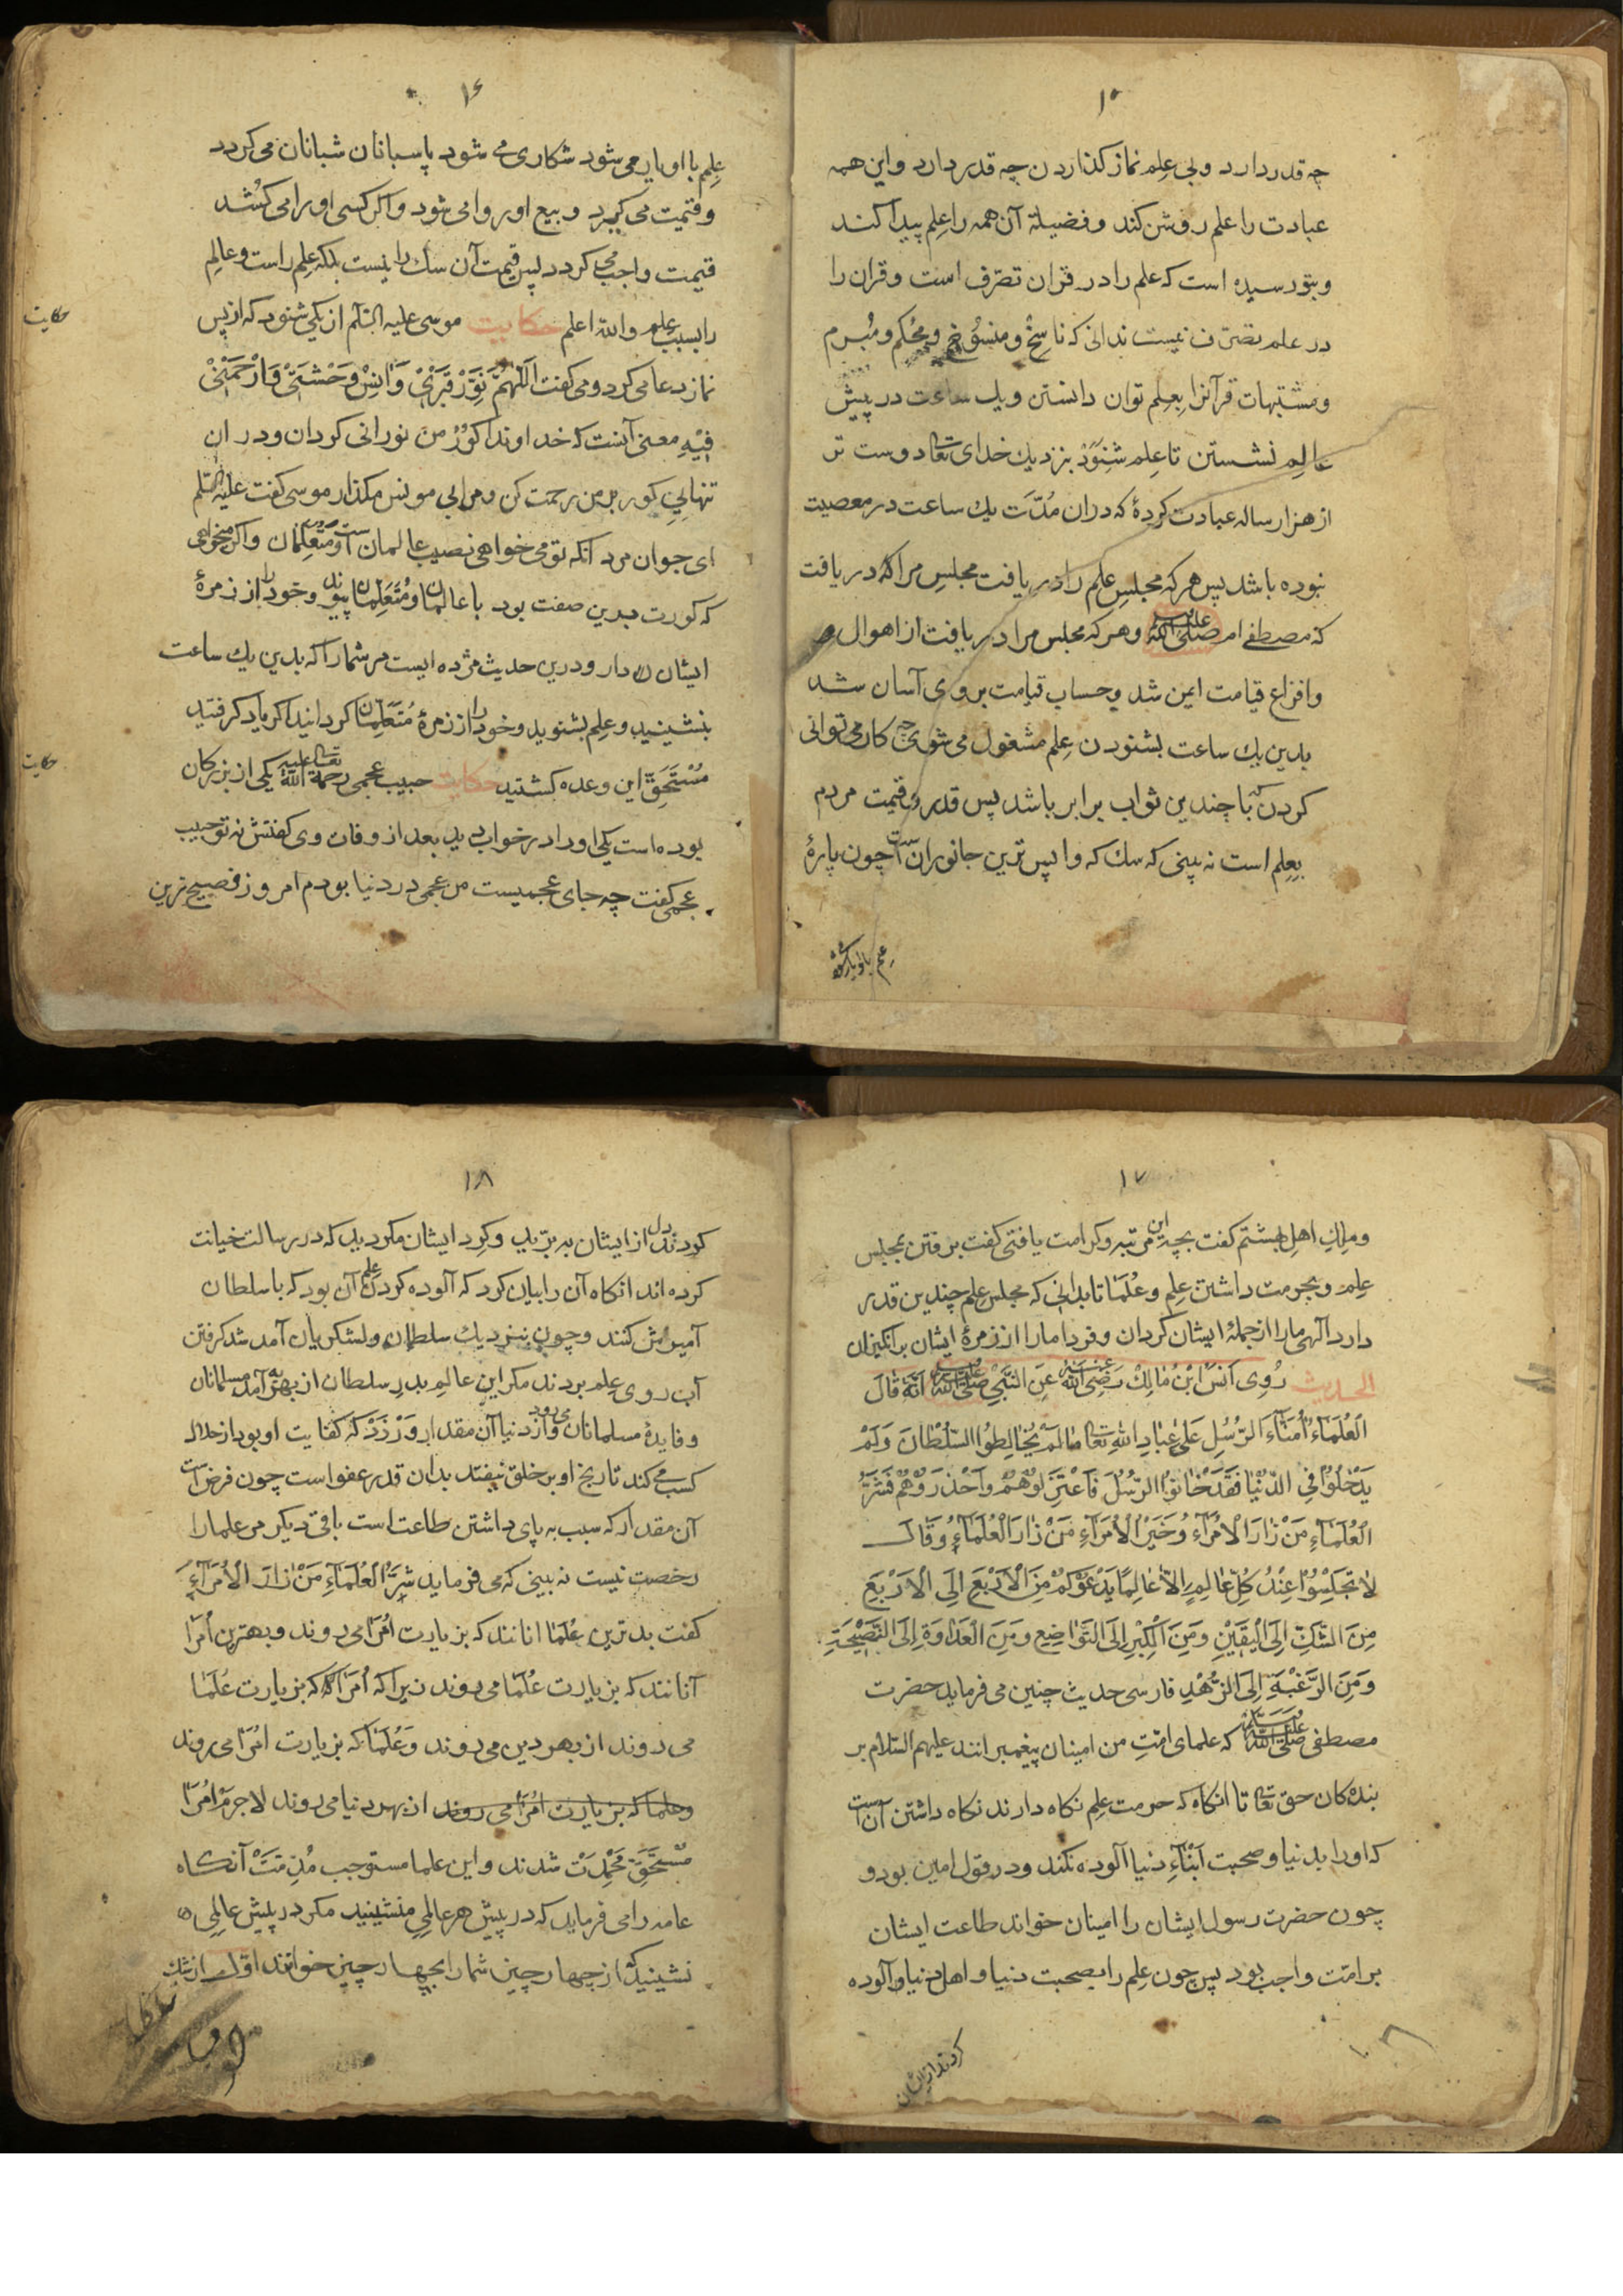 ۱۵
چه قدر دارد و بی علم نماز کذاردن چه قدر دارد و این همه
عبادت را علم روشن کند و فضیلة آن همه را علم پیدا کند
و بتو رسیده است که علم را در قران تصرّف است و قران را
در علم تصرّف نیست ندانی که ناسِخْ و منسُوخ و مُحْکم و مُبْرم
و مشتبهات قرآنرا بعِلم توان دانستن و یک ساعت در پیش
عالِمِ نشستن تا عِلم شنوَدْ بنزدیک خدای تعالی دوست تر
از هزار ساله عبادت کردهٔ که دران مُدّت یک ساعت در معصیت
نبوده باشد پس هر که مجلسِ علم را در یافت مجلسِ مرا که در یافت
که مصطفے ام صلی الله علیه وسلم و هر که مجلس مرا در یافت از اهوال
و افزاع قیامت ایمن شد و حساب قیامت بر وی آسان شد
بدین یک ساعت بشنودن عِلم مشغول می شوی چه کار می توانی
کردن که با چندین ثواب برابر باشد پس قدر و قیمت مردم
بعِلم است نه بینی که سک که واپس ترین جانوران است چون پارهٔ
علم با او یار میشود
۱۶
عِلم با او یار می شود شکاری می شود پاسبانان شبانان می کردد
و قیمت می کیرد و بیع او روا می شود و اکر کسی او را می کُشد
قیمت واجب می کردد پس قیمت آن سک را نیست بلکه عِلم راست و عالِم
را بسبب علم والله اعلم حکایت موسی علیه السّلام از یکی شنود که از پس
حکایت
نماز دعا می کرد و می کفت اَللّٰهُمَّ نَوِّرْ قَبْرَیْ وَاٰنِسْ وَحْشَتَیْ وَارْحَمْنِیْ
فِیْهِ معنی آنست که خداوندا کورِ من نورانی کردان و در ان
تنهائیِ کور بر من رحمت کن و مرا بی مونس مکذار موسی کفت علیه السّلم
ای جوان مرد آنکه تو می خواهی نصیب عالمان است و مُتعِلّمان و اکر میخواهی
که کورت بدین صفت بود با عالمان و مُتَعَلِمان پیوند و خود را از زمرهٔ
ایشان دار و درین حدیث مژده ایست مر شما را که بدین یک ساعت
بنشینید و عِلم بشنوید و خود را از زمرهٔ مُتَعَلِّمان کردانید اکر یاد کرفتید
مُسْتَحَقِّ این وعده کشتید حکایت حبیب عجمی رحمة الله تعالی علیه یکی از بزرکان
حکایت
بوده است یکی او را در خواب دید بعد از وفات وی کفتش نه تو حبیب
عجمی کفت چه جای عجمیست من عجمی در دنیا بودم امروز فصیح ترین
۱۷
و ملِکِ اهل بهشتم کفت بچه این مرتبه و کرامت یافتی کفت برفتن بمجلس
علم و بحرمت داشتن عِلم و عُلَمَا تا بدانی که مجلسِ علم چندین قدر
دارد آلهی مارا از جملهٔ ایشان کردان و فردا مارا از زمرهٔ ایشان برانکیزان
الحدیث رُوِیَ اَنَسْ ابْنُ مَالِكْ رَضِیَ الله عنه عَنِ النَّبِیِّ صلی الله علیه وسلم اَنَّهٗ قَالَ
اَلْعُلَمَآءُ اُمَنَآءُ الرُّسُلِ عَلیٰ عِبَادِ اللّٰهِ تَعَالیٰ مَا لَمْ یُخَالِطُوا السُّلْطَانَ وَلَمْ
یَدْخُلُوْا فِی الدُّنْیَا فَقَدْ خَانُوْا الرُّسُلَ فَاعْتَزِلُوْهُمْ وَاحْذَرُوْهُمْ فَشَرُّ
الْعُلَمَآءِ مَنْ زَارَ الْاُمَرَآءَ وَ خَیْرُ الْاُمَرَآءِ مَنْ زَارَ الْعُلَمَآءِ وَقَالَ
لاٰ تَجْلِسُوْا عِنْدَ کُلِّ عَالِمٍ اِلاّٰ عَالِمًا یَدْعُوْکُمْ مِنَ الْاَرْبَعِ اِلَی الْاَرْبَعِ
مِنَ الشَّكِّ اِلَی الْیَقِیْنِ وَمِنَ الْکِبْرِ اِلَی التَّوَاضِعِ وَمِنَ الْعَدَاوَةِ اِلَی النَّصِیْحَةِ
وَمِنَ الرَّغْبَةِ اِلَی الزُّهْدِ فارسی حدیث چنین می فرماید حضرت
مصطفی صلی الله علیه وسلم که علمای امّتِ من امینان پیغمبرانند علیهم السّلام بر
بندہ کان حق تعالی تا آنکاه که حرمت علم نکاه دارند نکاه داشتن آن است
که او را بدنیا و صحبت اَبْنَآءِ دنیا آلوده نکند و در قول امین بود و
چون حضرت رسول ایشان را امینان خواند طاعت ایشان
بر امّت واجب بود پس چون عِلم را بصحبت دنیا و اهل دنیا آلوده
کردند از ایشان
۱۸
کردند دل از ایشان به برّید و کرد ایشان مکردید که در رسالت خیانت
کرده اند انکاه آن را بیان کرد که آلوده کردن علم آن بود که با سلطان
آمیزش کنند و چون بنزدیك سلطان و لشکریان آمد شد کرفتن
آب روی عِلم بردند مکر این عالِم بدرِ سلطان از بهرِ آمد مسلمانان
و فایدهٔ مسلمانان می رود و از دنیا آن مقدار وَرْزَدْ که کفایت او بود از حلال
کسب می کند تا رنج او بر خلق نیفتد بدان قدر عفو است چون فرض است
آن مقدار که سبب به پای داشتن طاعت است باقی دیکر مر علما را
رخصت نیست نه بینی که می فرماید شَرُّ الْعُلَمَآءِ مَنْ زَارَ الْاُمَرَآءِ
کفت بدترین عُلَمَا انانند که بزیارت اُمَرَا می روند و بهترین اُمَرَا
آنانند که بزیارت عُلَمَا می روند زیرا که اُمَرَا که بزیارت عُلَمَا
می روند از بهر دین می روند وَ عُلَمَا که بزیارت اُمَرَا می روند
و علما که بزیارت امرا می روند از بهر دنیا می روند لاجرم اُمَرَا
مُسْتَحَقِّ مَحْمِدَتْ شدند و این علما مستوجب مُذِمّتْ آنکاه
عامه را می فرماید که در پیش هر عالمِی منشینید مکر در پیش عالِمِی
نشینید که از چهار چیز شما را بچهار چیز خوانند اوّل از شك